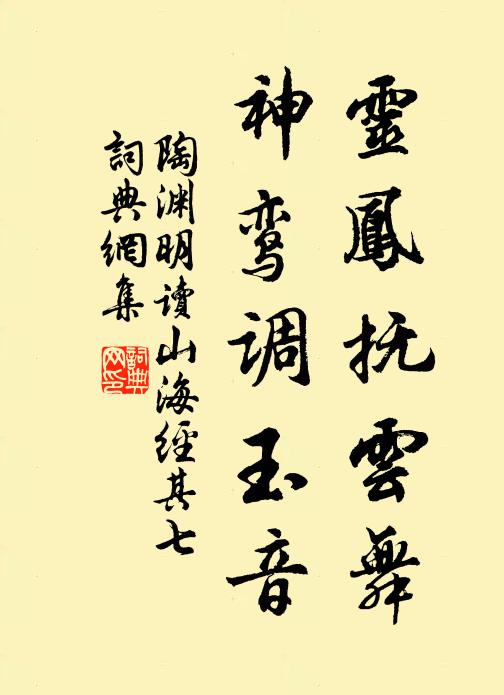 靈鳳抚雲舞
神鸾調玉音
陶渊明讀山海經其七
詞典網集
詞典
网印